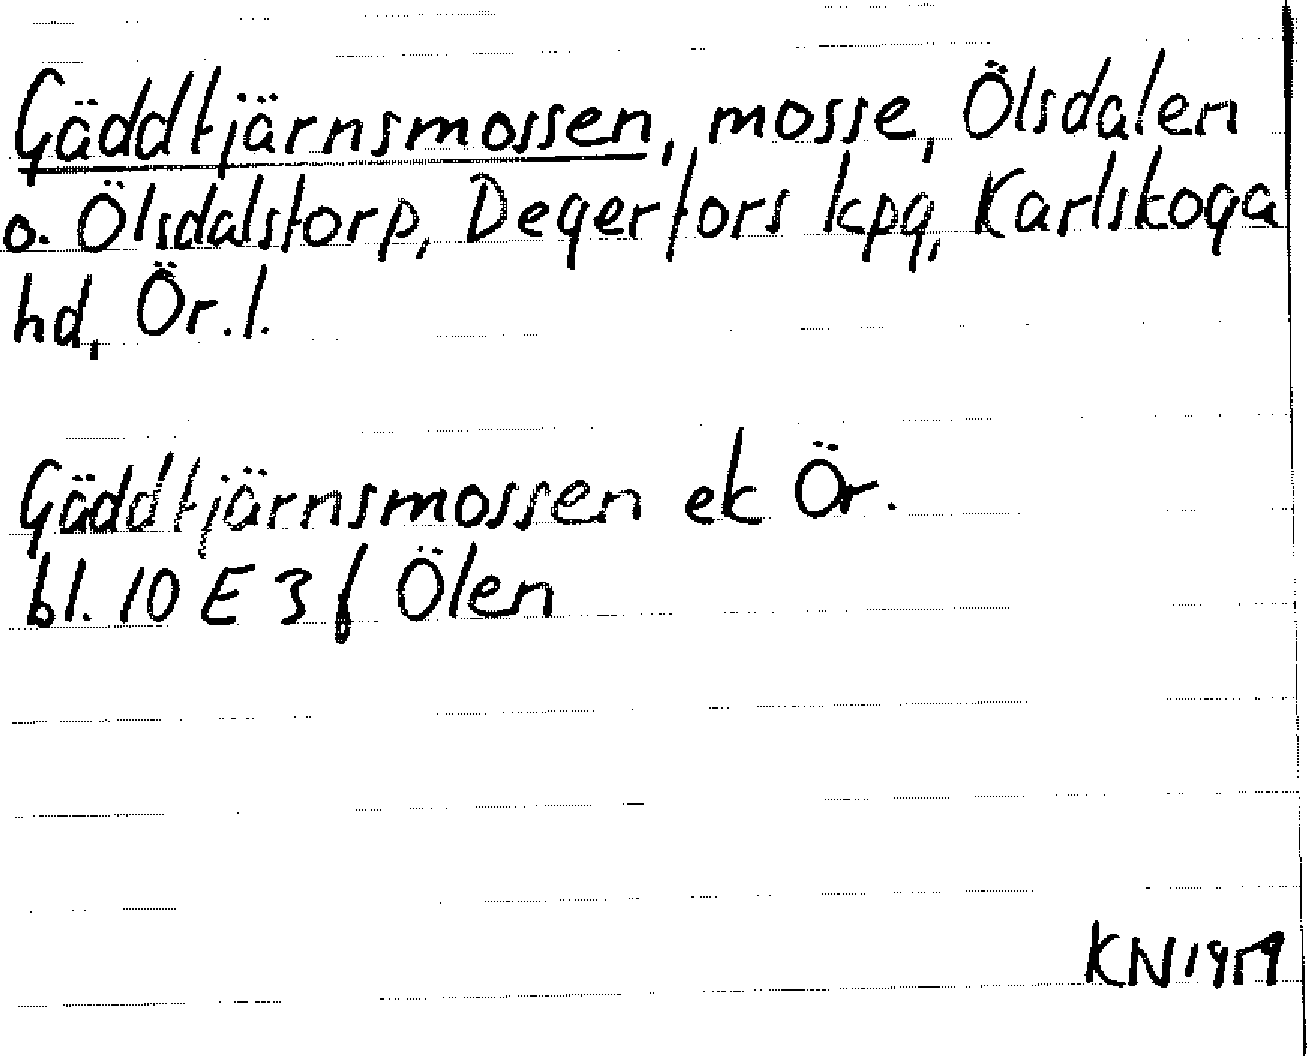 Gäddtjärnsmossen, mosse, Ölsdalen
o. Ölsdalstorp, Degerfors kpg, Karlskoga
hd, Ör.l.
Gäddtjärnsmossen ek Ör.
bl. 10 E 3 f Ölen
KN